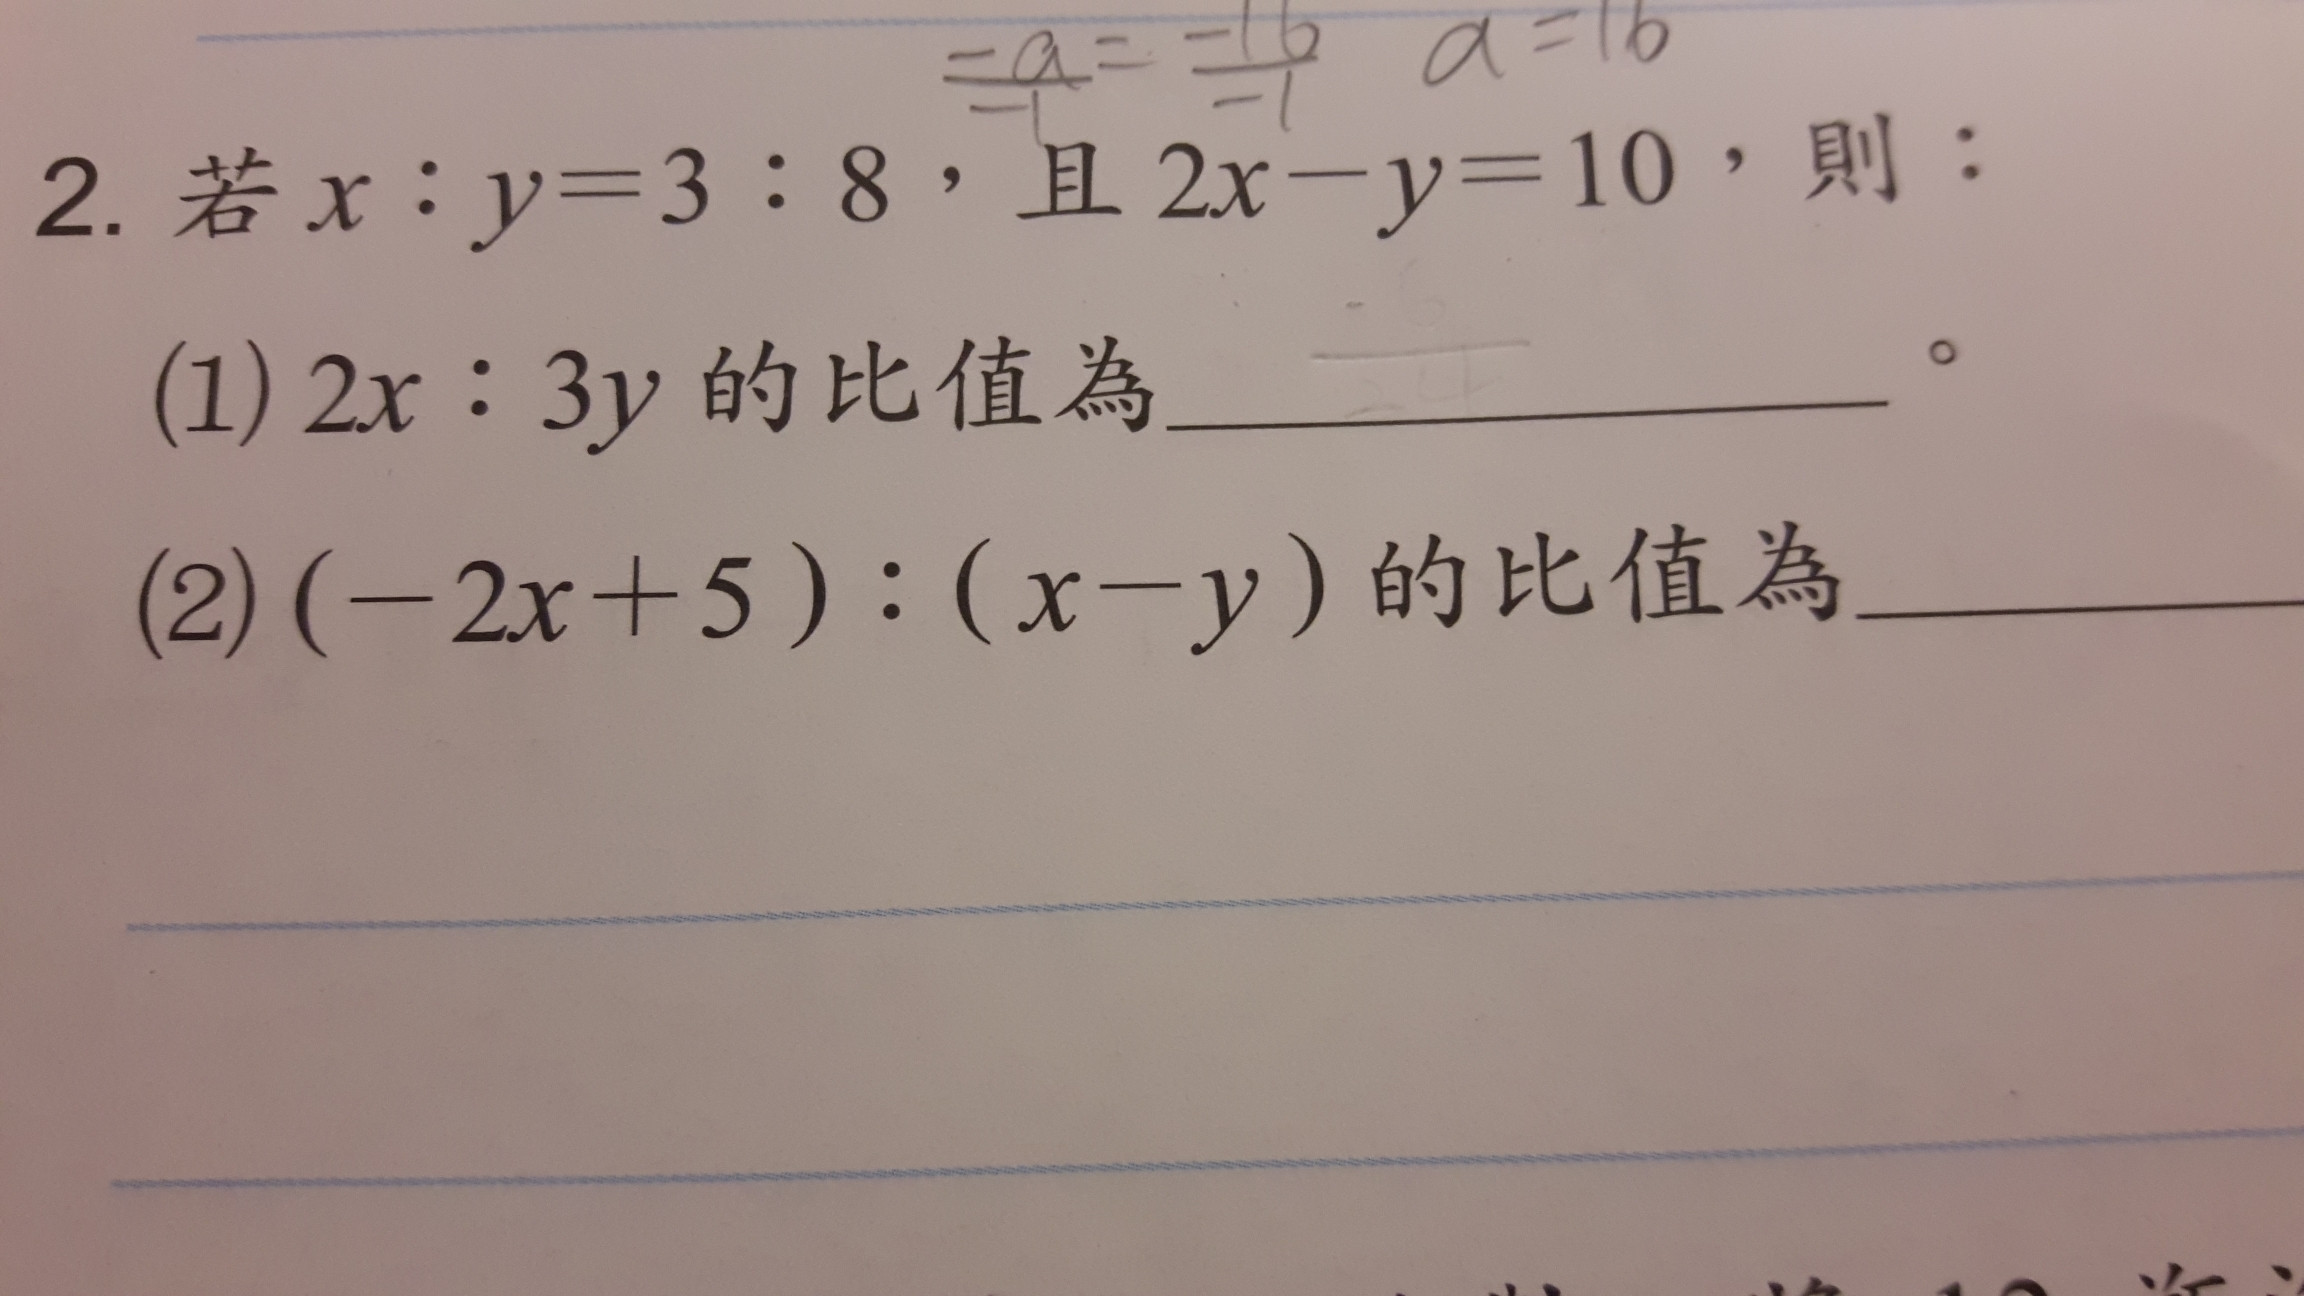 -a/-1 = -16/-1 a=16
2. 若 x：y=3：8，且 2x-y=10，則：
(1) 2x：3y 的比值為＿＿＿＿＿＿。
(2) (-2x+5)：(x-y) 的比值為＿＿＿＿